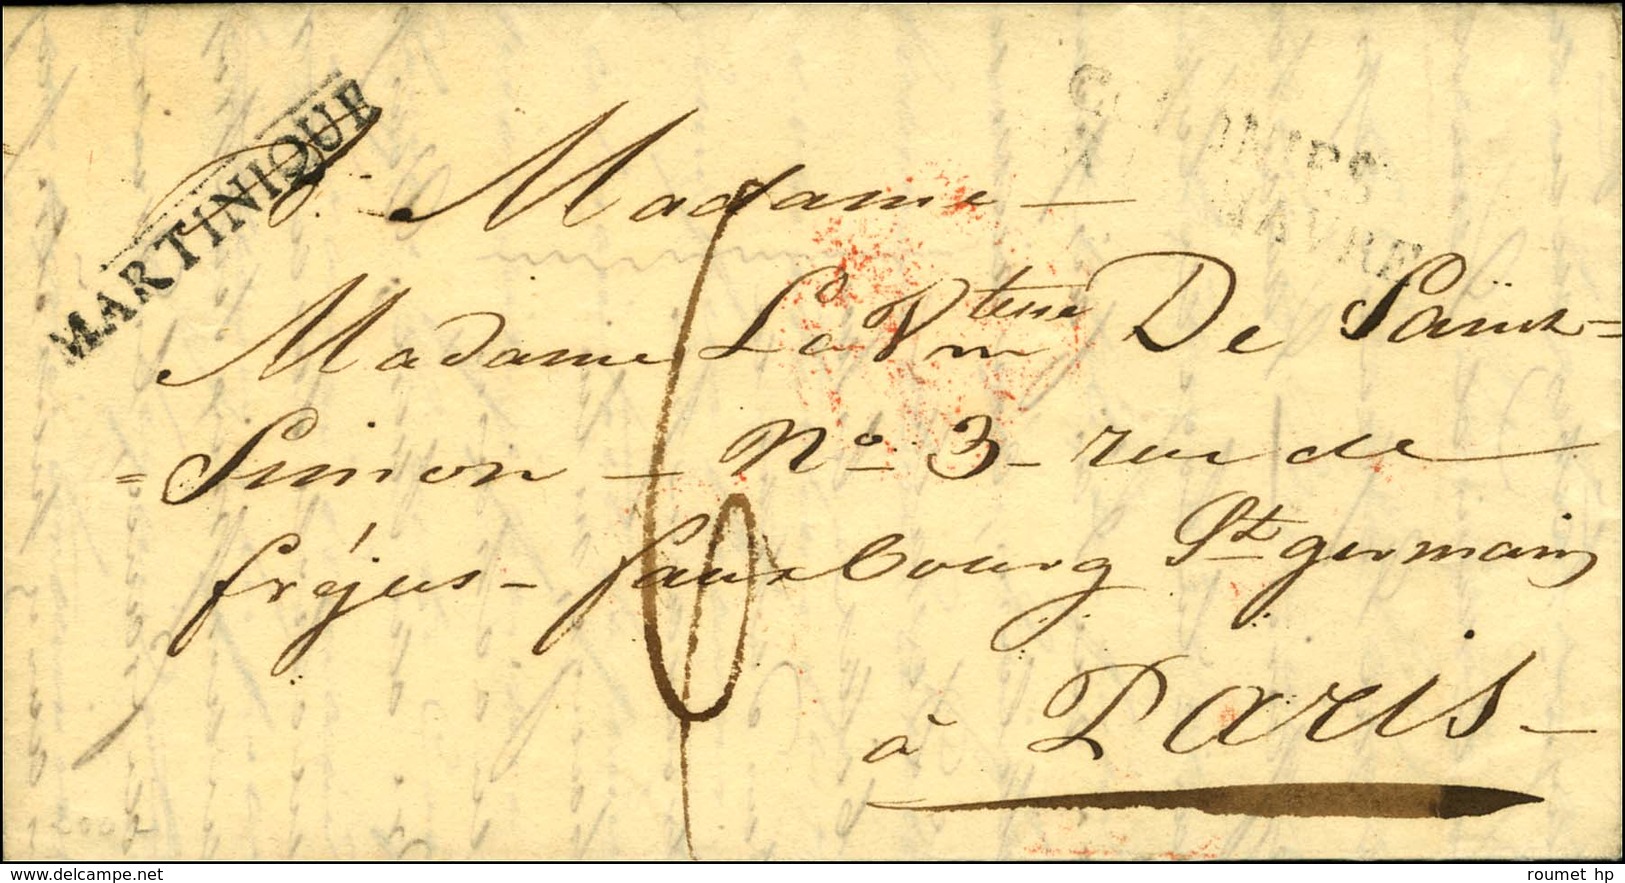 MARTINIQUE
COLONIES
HAVRE
Madame
Madame La Vtesse De Saint=
=Simon - No 3 - rue de
fréjus - fauxbourg St germain
à Paris
delcampe.net
roumet hp